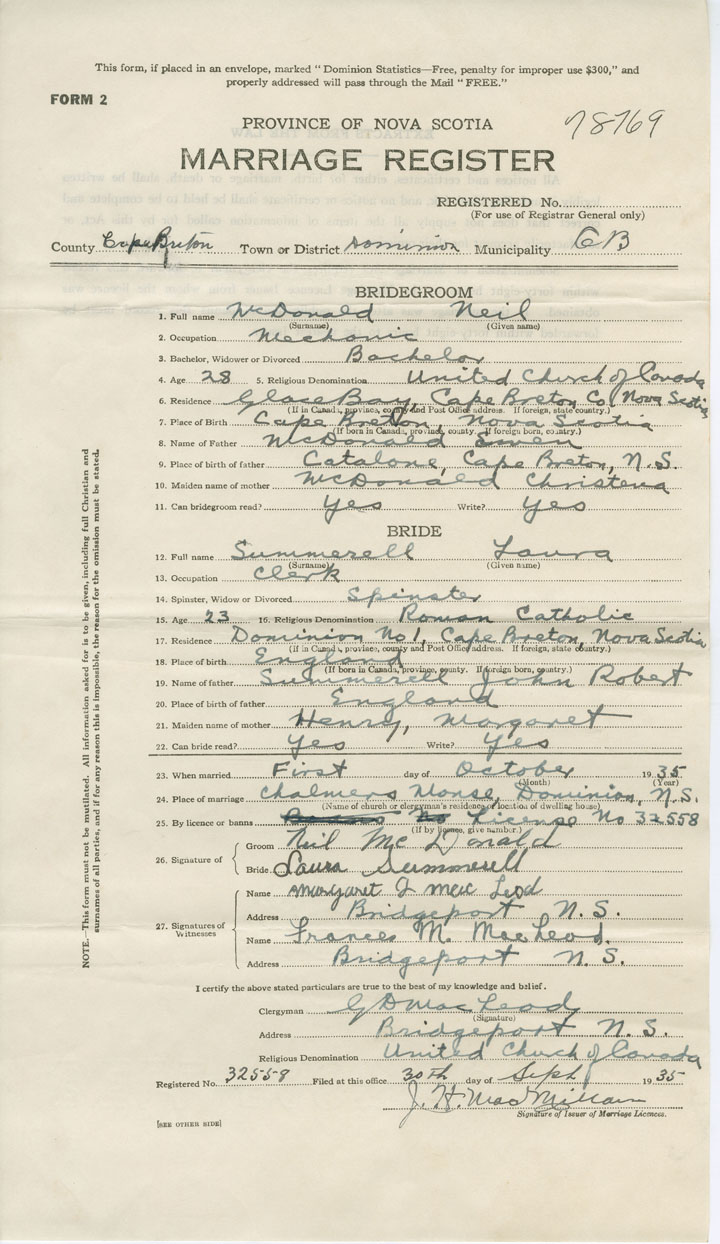 This form, if placed in an envelope, marked "Dominion Statistics—Free, penalty for improper use $300," and
properly addressed will pass through the Mail "FREE."
FORM 2
PROVINCE OF NOVA SCOTIA 78769
MARRIAGE REGISTER
REGISTERED No.
(For use of Registrar General only)
County Cape Breton Town or District Dominion Municipality CB
BRIDEGROOM
1. Full name McDonald Neil
(Surname) (Given name)
2. Occupation Mechanic
3. Bachelor, Widower or Divorced Bachelor
4. Age 28 5. Religious Denomination United Church of Canada
6. Residence Glace Bay, Cape Breton Co. Nova Scotia
(If in Canada, province, county and Post Office address. If foreign, state country.)
7. Place of Birth Cape Breton, Nova Scotia
(If born in Canada, province, county. If foreign born, country.)
8. Name of Father McDonald Ewen
9. Place of birth of father Catalone, Cape Breton, N.S.
10. Maiden name of mother McDonald Christena
11. Can bridegroom read? Yes Write? Yes
BRIDE
12. Full name Summerell Laura
(Surname) (Given name)
13. Occupation Clerk
14. Spinster, Widow or Divorced Spinster
15. Age 23 16. Religious Denomination Roman Catholic
17. Residence Dominion No 1, Cape Breton, Nova Scotia
(If in Canada, province, county and Post Office address. If foreign, state country.)
18. Place of birth England
(If born in Canada, province, county. If foreign born, country.)
19. Name of father Summerell John Robert
20. Place of birth of father England
21. Maiden name of mother Henry, Margaret
22. Can bride read? Yes Write? Yes
23. When married First day of October 1935
(Month) (Year)
24. Place of marriage Chalmers Manse, Dominion, N.S.
(Name of church or clergyman's residence, location of dwelling house)
25. By licence or banns License No 32558
(If by licence, give number.)
26. Signature of Groom Neil McDonald
Bride Laura Summerell
27. Signatures of Witnesses
Name Margaret J MacLeod
Address Bridgeport N.S.
Name Frances M. MacLeod
Address Bridgeport N.S.
I certify the above stated particulars are true to the best of my knowledge and belief.
Clergyman G D MacLeod
(Signature)
Address Bridgeport N.S.
Religious Denomination United Church of Canada
Registered No. 32558 Filed at this office 30th day of Sept 1935
J. H. MacMillan
Signature of Issuer of Marriage Licences.
[SEE OTHER SIDE]
NOTE.—This form must not be mutilated. All information asked for is to be given, including full Christian and
surnames of all parties, and if for any reason this is impossible, the reason for the omission must be stated.